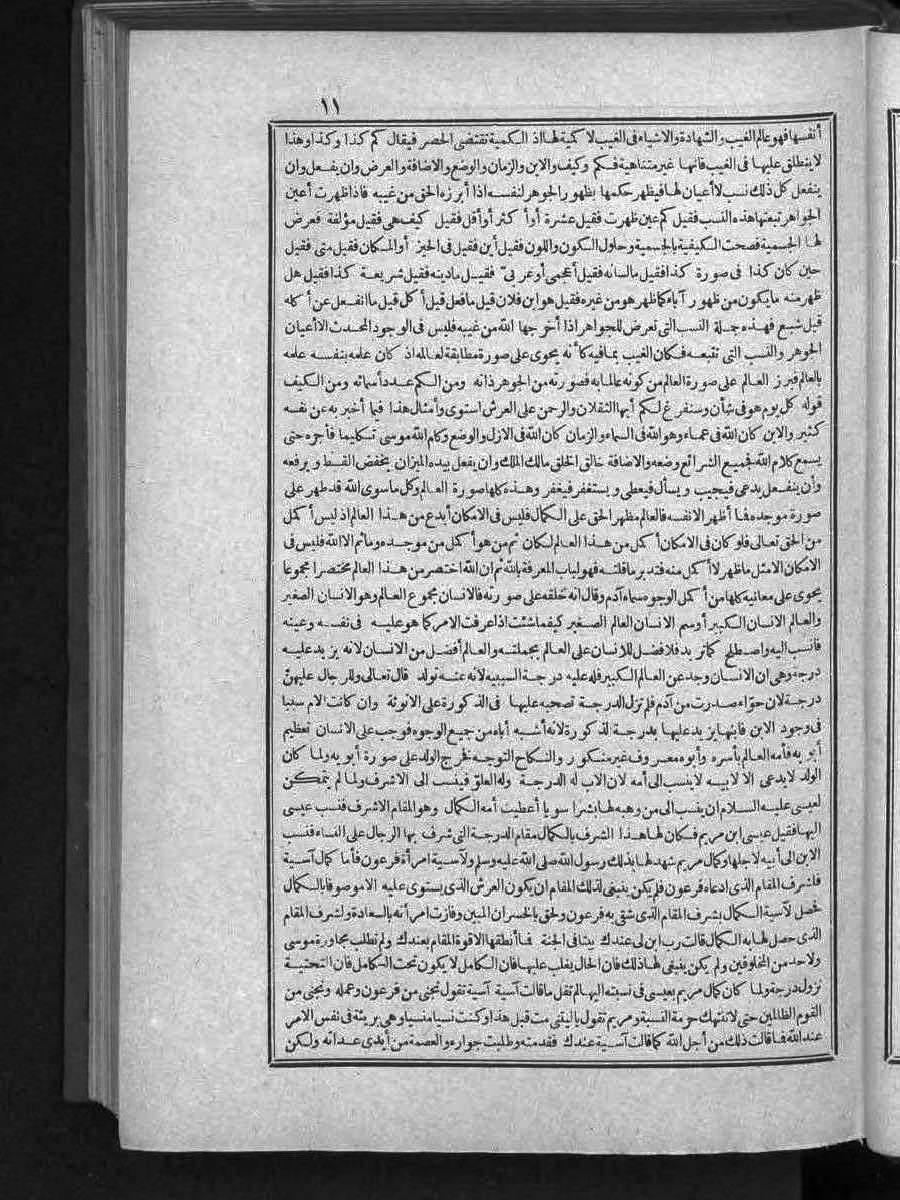 ١١
أنفسها فهو عالم الغيب والشهادة والاشياء فى الغيب لا كمية لها اذ الكمية تقتضى الحصر فيقال كم كذا وكذا وهذا
لا ينطلق عليها فى الغيب فانها غير متناهية فكم وكيف والاين والزمان والوضع والاضافة والعرض وان يفعل وان
ينفعل كل ذلك نسب لا أعيان لها فيظهر حكمها بظهور الجوهر لنفسه اذا أبرزه الحق من غيبه فاذا ظهرت أعين
الجواهر تبعتها هذه النسب فقيل كم عين ظهرت فقيل عشرة أو أكثر أو أقل فقيل كيف هى فقيل مؤلفة فعرض
لها الجسمية فصحت الكيفية بالجسمية وحلول الكون واللون فقيل أين فقيل فى الحيز أو المكان فقيل متى فقيل
حين كان كذا فى صورة كذا فقيل ما لسانه فقيل أعجمى أو عربى فقيل ما دينه فقيل شريعة كذا فقيل هل
ظهر منه ما يكون من ظهور آباء كما ظهر هو من غيره فقيل هو ابن فلان قيل ما فعل قيل أكل قيل ما انفعل عن أكله
قيل شبع فهذه جملة النسب التى تعرض للجواهر اذا أخرجها الله من غيبه فليس فى الوجود المحدث الا أعيان
الجوهر والنسب التى تتبعه فكان الغيب بما فيه كأنه يحوى على صورة مطابقة لعالمه اذ كان علمه بنفسه علمه
بالعالم فبرز العالم على صورة العالم من كونه عالما به فصورته من الجوهر ذاته ومن الكم عدد أسمائه ومن الكيف
قوله كل يوم هو فى شأن وسنفرغ لكم أيها الثقلان والرحمن على العرش استوى وأمثال هذا فيما أخبر به عن نفسه
كثير والاين كان الله فى عماء وهو الله فى السماء والزمان كان الله فى الازل والوضع وكلم الله موسى تكليما فأجره حتى
يسمع كلام الله فجميع الشرائع وضعه والاضافة خالق الخلق مالك الملك وان يفعل بيده الميزان يخفض القسط ويرفعه
وأن ينفعل يدعى فيجيب ويسأل فيعطى ويستغفر فيغفر وهذه كلها صورة العالم وكل ما سوى الله قد ظهر على
صورة موجده فما أظهر الا نفسه فالعالم مظهر الحق على الكمال فليس فى الامكان أبدع من هذا العالم اذ ليس أكمل
من الحق تعالى فلو كان فى الامكان أكمل من هذا العالم لكان ثم من هو أكمل من موجده وما ثم الا الله فليس فى
الامكان الا مثل ما ظهر لا أكمل منه فتدبر ما قلته فهو لباب المعرفة بالله ثم ان الله اختصر من هذا العالم مختصرا مجموعا
يحوى على معانيه كلها من أكمل الوجوه سماه آدم وقال انه خلقه على صورته فالانسان مجموع العالم وهو الانسان الصغير
والعالم الانسان الكبير أوسم الانسان العالم الصغير كيفما شئت اذا عرفت الامر كما هو عليه فى نفسه وعينه
فانسب اليه واصطلح كما تريد فلا فضل للانسان على العالم بجملته والعالم أفضل من الانسان لانه يزيد عليه
درجة وهى ان الانسان وجد عن العالم الكبير فله عليه درجة السببية لانه عنه تولد قال تعالى وللرجال عليهن
درجة لان حوّاء صدرت من آدم فلم تزل الدرجة تصحبه عليها فى الذكورة على الانوثة وان كانت الام سببا
فى وجود الابن فابنها يزيد عليها بدرجة الذكورة لانه أشبه أباه من جميع الوجوه فوجب على الانسان تعظيم
أبويه فأمه العالم بأسره وأبوه معروف غير منكور والنكاح التوجه فخرج الولد على صورة أبويه ولما كان
الولد لا يدعى الا لابيه لا ينسب الى أمه لان الاب له الدرجة وله العلوّ فينسب الى الاشرف ولما لم يتمكن
لعيسى عليه السلام ان ينسب الى من وهبه لها بشرا سويا أعطيت أمه الكمال وهو المقام الاشرف فنسب عيسى
اليها فقيل عيسى ابن مريم فكان لها هذا الشرف بالكمال مقام الدرجة التى شرف بها الرجال على النساء فنسب
الابن الى أبيه لاجلها وكمال مريم شهد لها بذلك رسول الله صلى الله عليه وسلم ولآسية امرأة فرعون فأما كمال آسية
فلشرف المقام الذى ادعاه فرعون فلم يكن ينبغى لذلك المقام ان يكون العرش الذى يستوى عليه الا موصوفا بالكمال
فحصل لآسية الكمال بشرف المقام الذى شقى به فرعون ولحق بالخسران المبين وفازت امرأته بالسعادة ولشرف المقام
الذى حصل لها به الكمال قالت رب ابن لى عندك بيتا فى الجنة فما أنطقها الا قوة المقام بعندك ولم تطلب مجاورة موسى
ولا أحد من المخلوقين ولم يكن ينبغى لها ذلك فان الحال يغلب عليها فان الكامل لا يكون تحت الكامل فان التحتية
نزول درجة ولما كان كمال مريم بعيسى فى نسبته اليها لم تقل ما قالت آسية آسية تقول نجنى من فرعون وعمله ونجنى من
القوم الظالمين حتى لا تنتهك حرمة النسبة ومريم تقول يا ليتنى مت قبل هذا وكنت نسيا منسيا وهى بريئة فى نفس الامر
عند الله فما قالت ذلك من أجل الله كما قالت آسية عندك فقدمته وطلبت جواره والعصمة من أيدى عداته ولكن